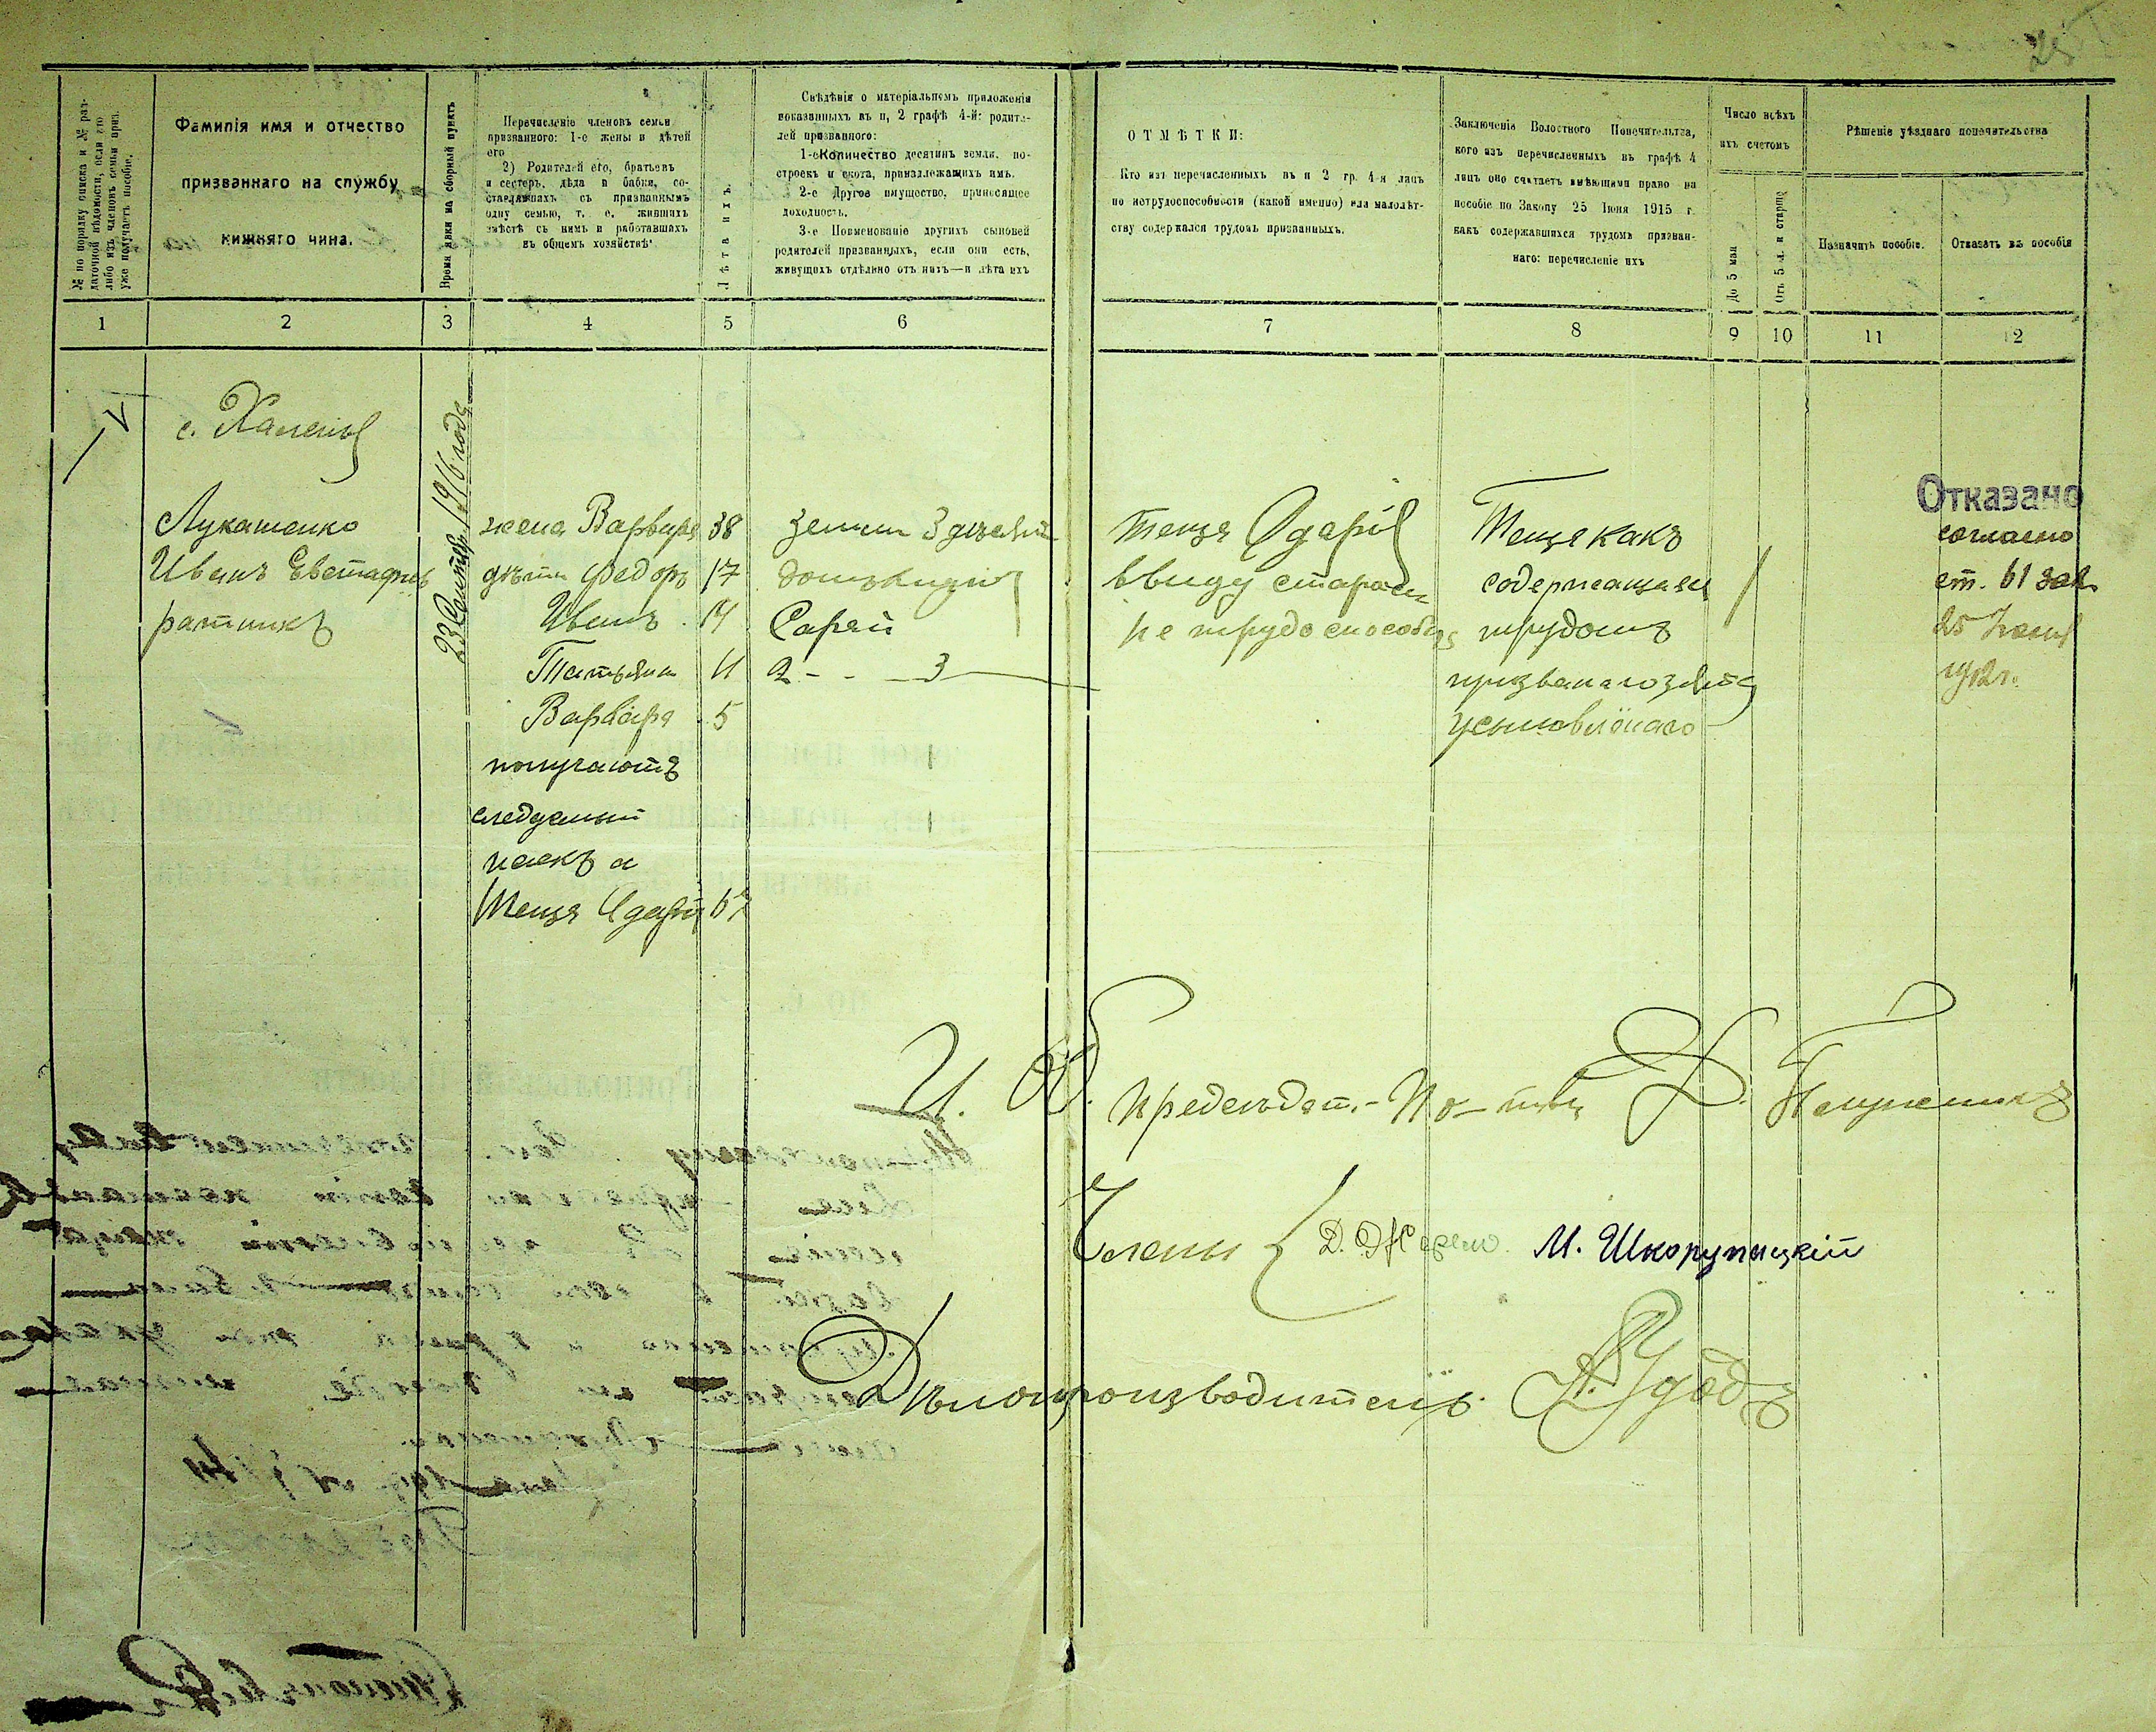 25
№ по порядку списка и № раз-
даточной вѣдомости, если кто
либо изъ членовъ семьи приз.
уже получаетъ пособіе.
Фамилія имя и отчество
призваннаго на службу
нижняго чина.
Время явки на сборный пунктъ
Перечисленіе членовъ семьи
призваннаго: 1-е жены и дѣтей
его
2) Родителей его, братьевъ
и сестеръ, дѣда и бабки, со-
ставлявшихъ съ призваннымъ
одну семью, т. е. жившихъ
вмѣстѣ съ нимъ и работавшихъ
въ общемъ хозяйствѣ.
Лѣта ихъ.
Свѣдѣнія о матеріальномъ приложенія
показанныхъ въ п, 2 графѣ 4-й: родите-
лей призваннаго:
1-е Количество десятинъ земли, по-
строекъ и скота, принадлежащихъ имъ.
2-е Другое имущество, приносящее
доходность.
3-е Поименованіе другихъ сыновей
родителей призванныхъ, если они есть,
живущихъ отдѣльно отъ нихъ—и лѣта ихъ
ОТМѢТКИ:
Кто изъ перечисленныхъ въ п 2 гр. 4-я лицъ
по нетрудоспособности (какой именно) или малолѣт-
ству содержался трудомъ призванныхъ.
Заключенія Волостного Попечительства,
кого изъ перечисленныхъ въ графѣ 4
лицъ оно считаетъ имѣющими право на
пособіе по Закону 25 Іюня 1915 г.
какъ содержавшихся трудомъ призван-
наго: перечисленіе ихъ
Число всѣхъ
ихъ счетомъ
До 5 мая
Отъ 5 л. и старше
Рѣшеніе уѣзднаго попечительства
Назначить пособіе.
Отказать въ пособія
1 2 3 4 5 6 7 8 9 10 11 12
с. Халепья
23 Сентяб. 1916 года
Лукашенко
Иванъ Евстафіев
ратникъ
жена Варвара 38
дѣти Федоръ 17
Иванъ 14
Татьяна 11
Варвара 5
получаютъ
следуемый
паекъ а
теща Одарія 67
земли 3 десятин
домъ
Сарай
2 - - 3
теща Одарія
ввиду старости
не трудоспособна
Теща какъ
содержащаяся
трудомъ
призванаго зятя
усыновлёнаго
/
Отказано
согласно
ст. 61 зак
25 Іюня
1912 г.
И. О. Председат.- По-тва
Члены
Д. М. Шкорупицкій
Дѣлопроизводитель. А. Удодъ